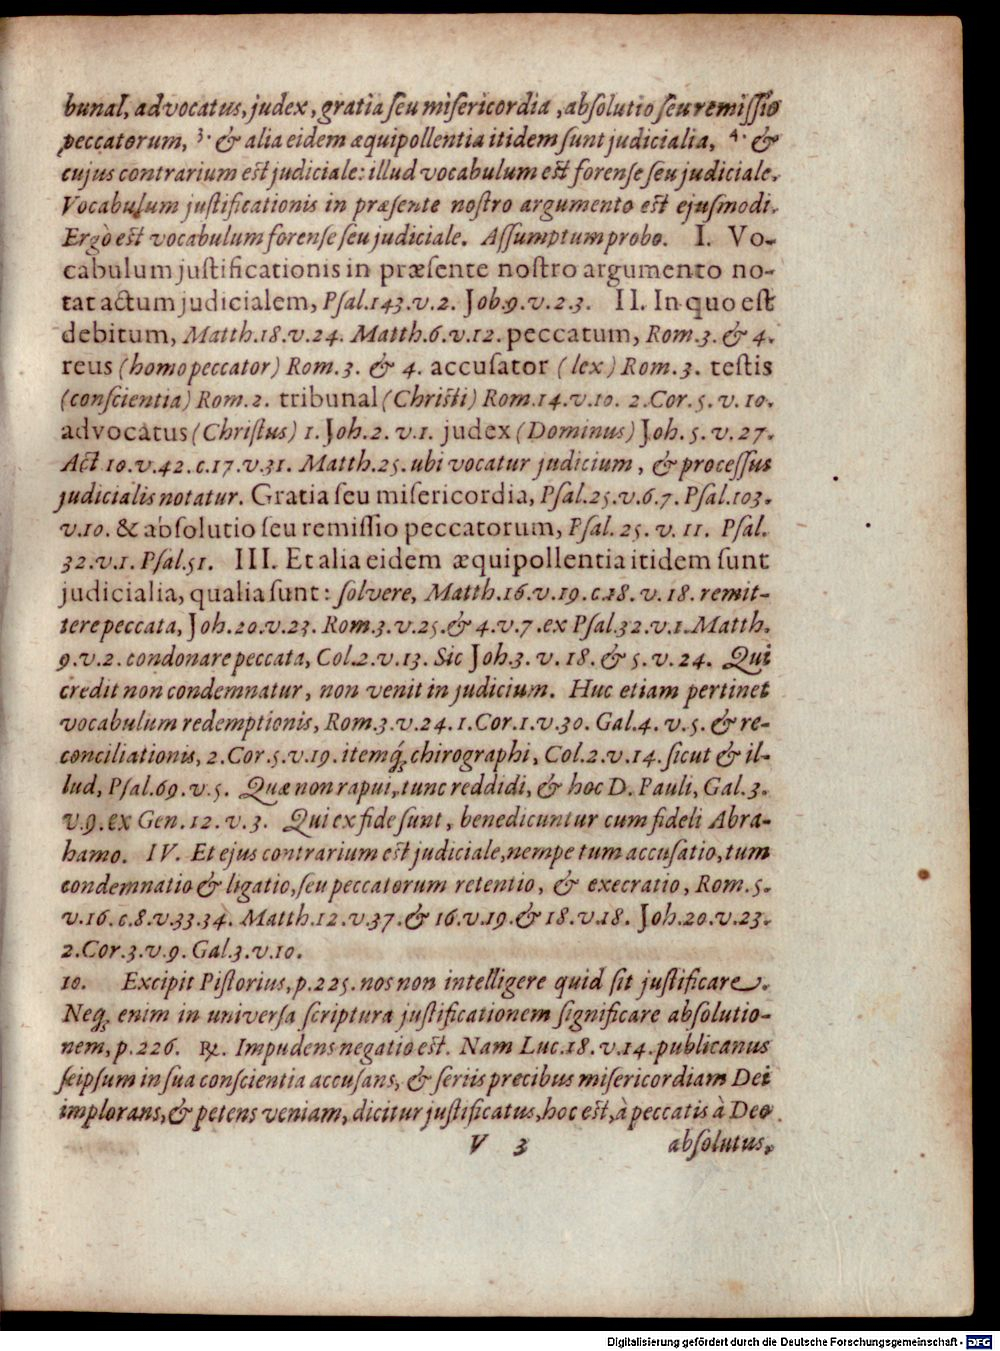 bunal, advocatus, judex, gratia ſeu miſericordia, abſolutio ſeu remiſſio
peccatorum, 3. & alia eidem æquipollentia itidem ſunt judicialia, 4. &
cujus contrarium eſt judiciale: illud vocabulum eſt forenſe ſeu judiciale.
Vocabulum juſtificationis in præſente noſtro argumento eſt ejuſmodi.
Ergò eſt vocabulum forenſe ſeu judiciale. Aſſumptum probo. I. Vo-
cabulum juſtificationis in præſente noſtro argumento no-
tat actum judicialem, Pſal. 143. v. 2. Job. 9. v. 2. 3. II. In quo eſt
debitum, Matth. 18. v. 24. Matth. 6. v. 12. peccatum, Rom. 3. & 4.
reus (homo peccator) Rom. 3. & 4. accuſator (lex) Rom. 3. teſtis
(conſcientia) Rom. 2. tribunal (Chriſti) Rom. 14. v. 10. 2. Cor. 5. v. 10.
advocatus (Chriſtus) 1. Joh. 2. v. 1. judex (Dominus) Joh. 5. v. 27.
Act 10. v. 42. c. 17. v. 31. Matth. 25. ubi vocatur judicium, & proceſſus
judicialis notatur. Gratia ſeu miſericordia, Pſal. 25. v. 6. 7. Pſal. 103.
v. 10. & abſolutio ſeu remiſſio peccatorum, Pſal. 25. v. 11. Pſal.
32. v. 1. Pſal. 51. III. Et alia eidem æquipollentia itidem ſunt
judicialia, qualia ſunt: ſolvere, Matth. 16. v. 19. c. 18. v. 18. remit-
tere peccata, Joh. 20. v. 23. Rom. 3. v. 25. & 4. v. 7. ex Pſal. 32. v. 1. Matth.
9. v. 2. condonare peccata, Col. 2. v. 13. Sic Joh. 3. v. 18. & 5. v. 24. Qui
credit non condemnatur, non venit in judicium. Huc etiam pertinet
vocabulum redemptionis, Rom. 3. v. 24. 1. Cor. 1. v. 30. Gal. 4. v. 5. & re-
conciliationis, 2. Cor. 5. v. 19. itemq́; chirographi, Col. 2. v. 14. ſicut & il-
lud, Pſal. 69. v. 5. Quæ non rapui, tunc reddidi, & hoc D. Pauli, Gal. 3.
v. 9. ex Gen. 12. v. 3. Qui ex fide ſunt, benedicuntur cum fideli Abra-
hamo. IV. Et ejus contrarium eſt judiciale, nempe tum accuſatio, tum
condemnatio & ligatio, ſeu peccatorum retentio, & execratio, Rom. 5.
v. 16. c. 8. v. 33. 34. Matth. 12. v. 37. & 16. v. 19. & 18. v. 18. Joh. 20. v. 23.
2. Cor. 3. v. 9. Gal. 3. v. 10.
10. Excipit Piſtorius, p. 225. nos non intelligere quid ſit juſtificare.
Neq́; enim in univerſa ſcriptura juſtificationem ſignificare abſolutio-
nem, p. 226. ℞. Impudens negatio eſt. Nam Luc. 18. v. 14. publicanus
ſeipſum in ſua conſcientia accuſans, & ſeriis precibus miſericordiam Dei
implorans, & petens veniam, dicitur juſtificatus, hoc eſt, à peccatis à Deo
V 3 abſolutus,
Digitalisierung gefördert durch die Deutsche Forschungsgemeinschaft - DFG